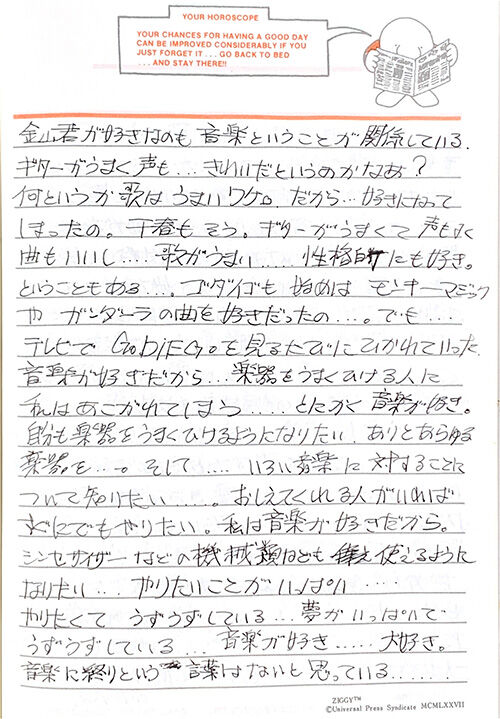 YOUR HOROSCOPE
YOUR CHANCES FOR HAVING A GOOD DAY
CAN BE IMPROVED CONSIDERABLY IF YOU
JUST FORGET IT... GO BACK TO BED
...AND STAY THERE!!
金山君が好きなのも 音楽ということが関係している.
ギターがうまく声も... きれいだというのかなあ?
何というか歌は うまいワケ。 だから... 好きになって
しまったの。 千春も そう。 ギターがうまくて 声もよく
曲もいいし.... 歌がうまい..... 性格的にも好き。
ということもある....。 ゴダイゴも 始めは モンキーマジック
や ガンダーラ の曲を好きだったの...。 でも...
テレビで GODIEGOを見るたびに ひかれていった.
音楽が好きだから... 楽器をうまくひける人に
私は あこがれてしまう ..... とにかく 音楽が好き。
自分も楽器をうまくひけるようになりたい. ありとあらゆる
楽器を...。 そして ..... いろいろ音楽に 対することに
ついて 知りたい.....。 おしえてくれる人がいれば
すぐにでもやりたい。 私は音楽が好きだから。
シンセサイザー などの機械類なども 使えるように
なりたい... やりたいことが いっぱい ....
やりたくて うずうずしている... 夢がいっぱいで
うずうずしている ... 音楽が好き..... 大好き。
音楽に終りという 言葉はないと 思っている......
ZIGGY™
©Universal Press Syndicate MCMLXXVII